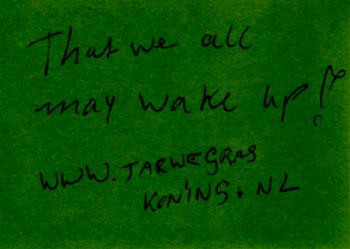 That we all
may wake up!
WWW.TARWEGRAS
KONING.NL